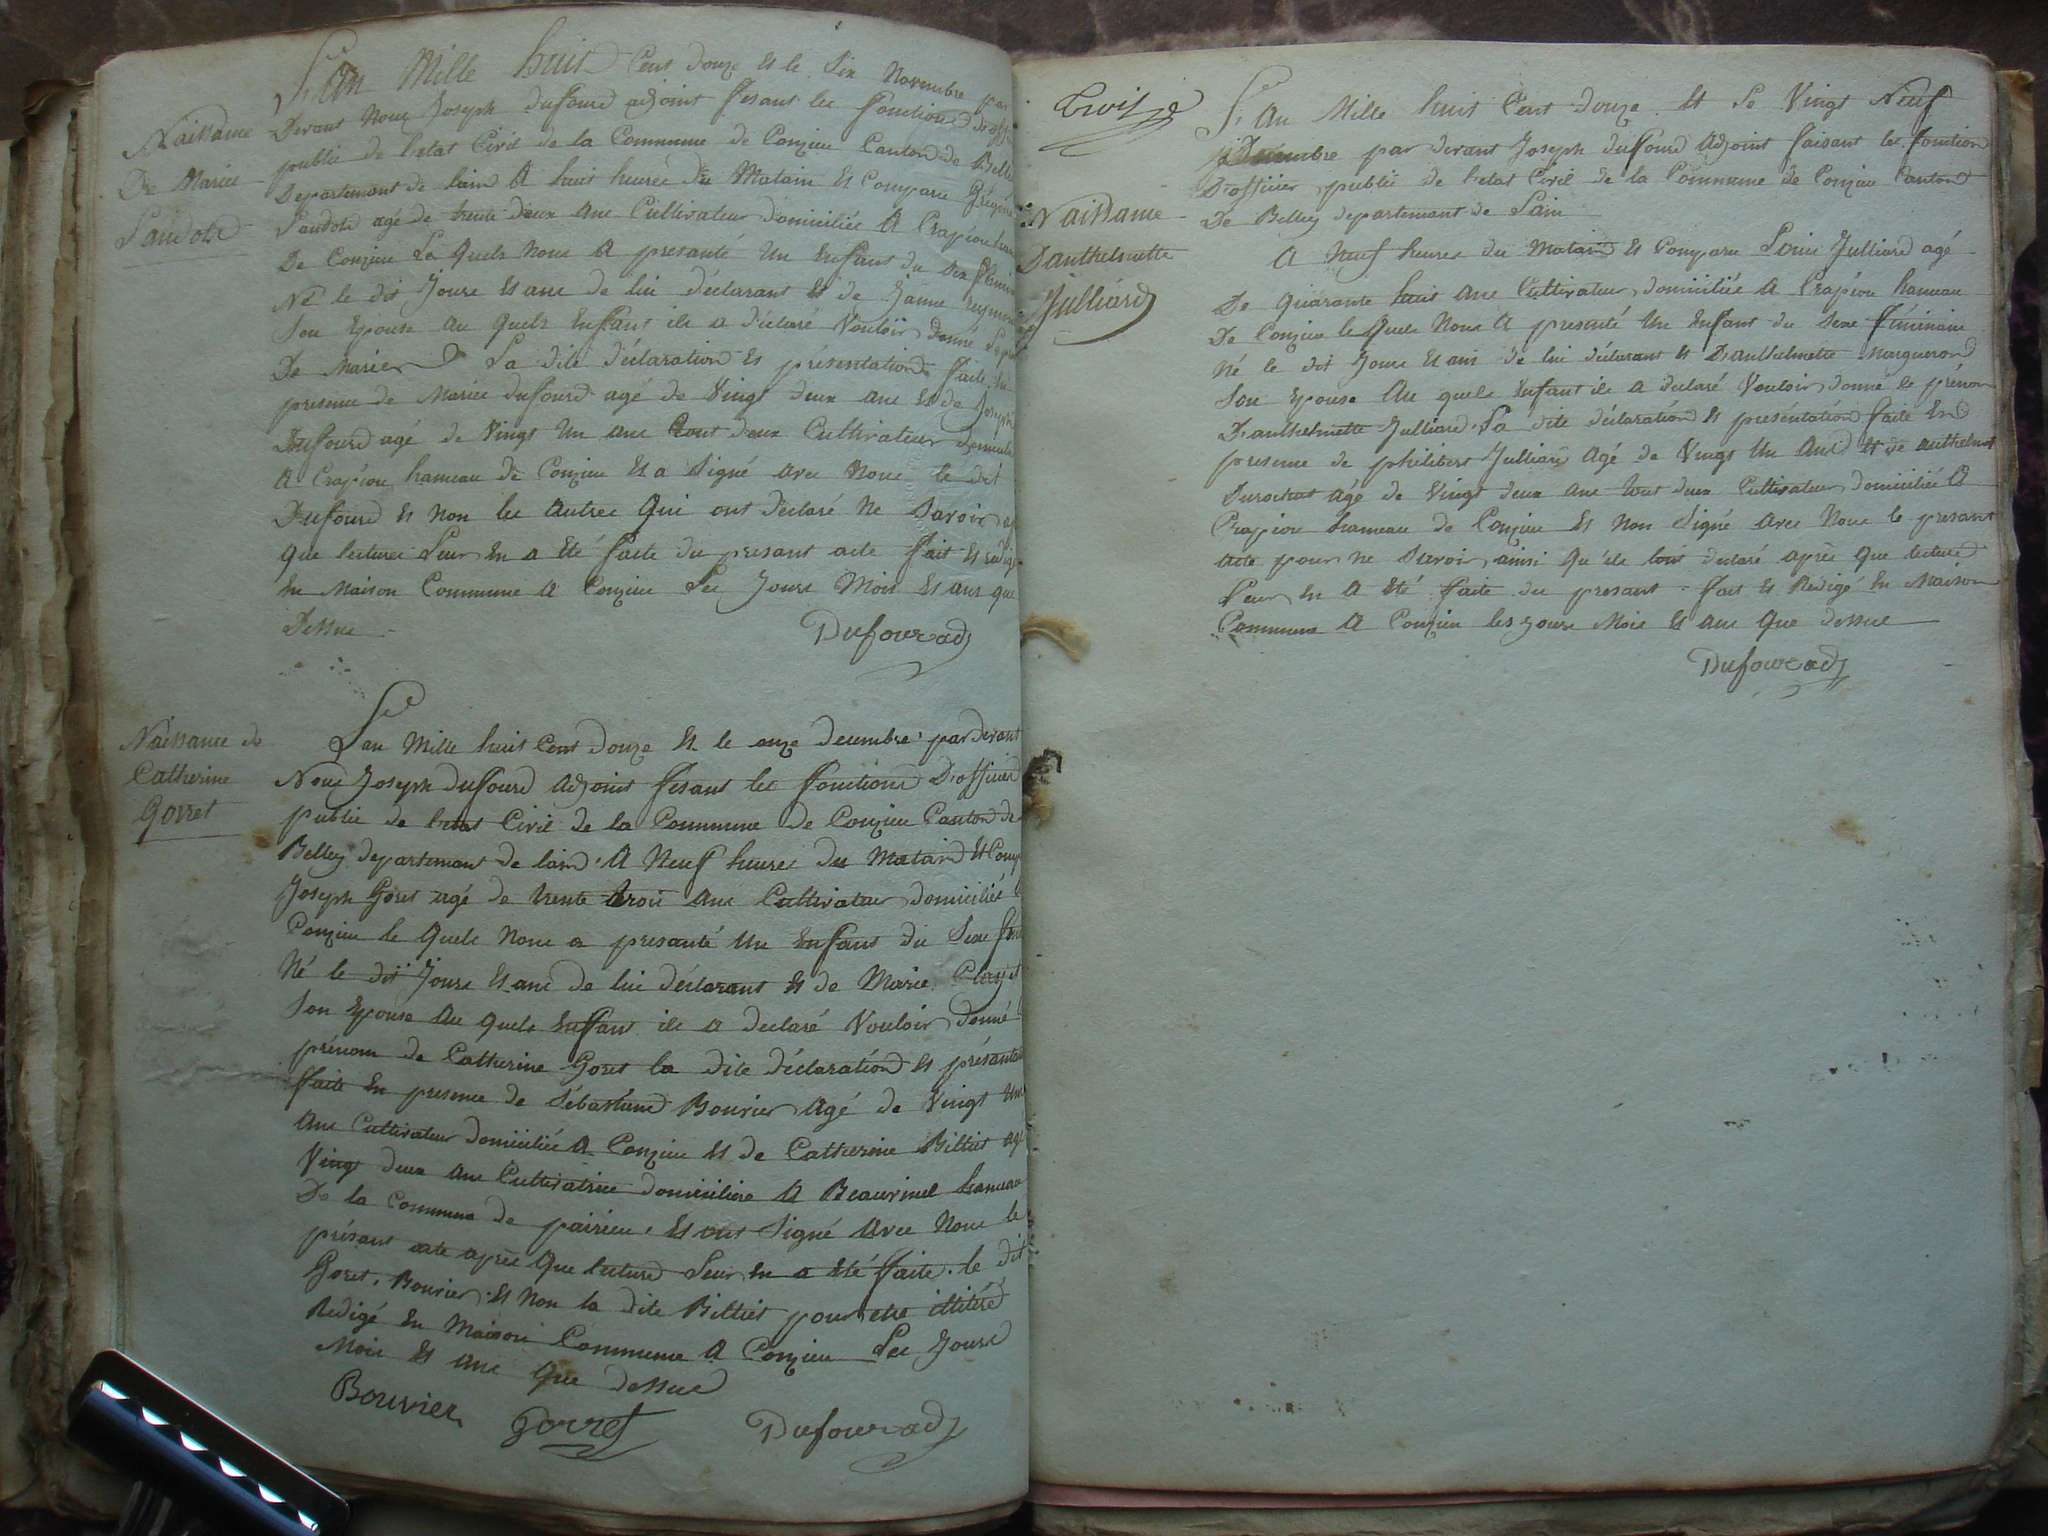 L'an Mille huit Cent douze Et le Six Novembre par
Naissance
De Marie
Pandote
Devant Nous Joseph dufourd adjoint fesant les fonctions
public de l'etat Civil de la Commune de Conzieu Canton de Belley
Departemant de lain A huit heures du Matain Et Compare
Pandote agé de trente deux ans Cultivateur domiciliée A Crapéou
De Conzieu Le quels Nous A presanté Un Enfant du Sex
Né le dit Jours Et ans de lui déclarant Et de Janne
Son Epouse Au quels Enfant ile a déclaré Vouloir donné
De Marie La dite déclaration Et présentation faite
presence de Marice dufourd agé de Vingt deux ans Et de Joseph
Dufourd agé de Vingt Un ans tout deux Cultivateur
A Crapéou hameau de Conzieu Et a Signé avec Nous le dit
Dufourd Et Non les Autres Qui ont déclaré Ne Savoir
que lecture Leur En a été faite du presant acte fait Et
En Maison Commune A Conzieu Les Jours Mois Et ans que
Dessus
Dufourd adj
Naissance de
Catherine
Gorret
Lan Mille huit Cent douze Et le onze decembre par devant
Nous Joseph dufourd Adjoint fesant les fonctions D'officier
public de letat Civil de la Commune de Conzieu Canton de
Belley departemant de lain A Neuf heures du Matain Et
Joseph Goret agé de trente trois ans Cultivateur domiciliée
Conzieu le quels Nous a presanté Un Enfant du Sexe
Né le dit Jours Et ans de lui déclarant Et de Marie
Son Epouse Au quels Enfant ile a declaré Vouloir donné
prénom de Catherine Goret la dite déclaration Et
faite En presence de Sébastiens Bouvier Agé de Vingt Un
Ans Cultivateur domiciliée A Conzieu Et de Catherine Billiet
Vingt deux ans Cultivatrice domiciliére A Beauvinel hameau
De la Commune de peirieu, Et ont Signé Avec Nous le
présant acte aprés Que lecture Leur En a été faite. le dit
Goret, Bouvier Et Non la dite Billiet pour etre illitéré
Redigé En Maison Commune A Conzieu Les Jours
Mois Et ans Que dessus
Bouvier Gorret Dufourd adj
troize
Naissance
D'anthelmette
Julliard
L'An Mille huit Cent douze Et Le Vingt Neuf
Decembre par devant Joseph dufourd Adjoint faisant les fonction
D'officier public de l'etat Civil de la Commune de Conzieu Canton
De Belley departemant de Lain
A Neuf heures du Matain Et Compare Julliard agé
De quarante huit ans Cultivateur domiciliée A Crapéou hameau
De Conzieu le quels Nous A presenté Un Enfant du Sexe féminain
Né le dit Jours Et ans de lui déclarant Et D'anthelmette Margueron
Son Epouse Au quels Enfant ile a declaré Vouloir donné le prénom
D'anthelmette Julliard, La dite déclaration Et présentation faite En
presence de philibert Julliard Agé de Vingt Un Ans Et de anthelme
Durochat agé de Vingt deux ans tout deux Cultivateur domiciliée A
Crapéou hameau de Conzieu Et Non Signé Avec Nous le presant
acte pour ne Savoir ainsi Qu'ile lont declaré aprés Que lecture
Leur En A été faite du presant fait Et Redigé En Maison
Commune A Conzieu les Jours Mois Et ans Que dessus
Dufourd adj